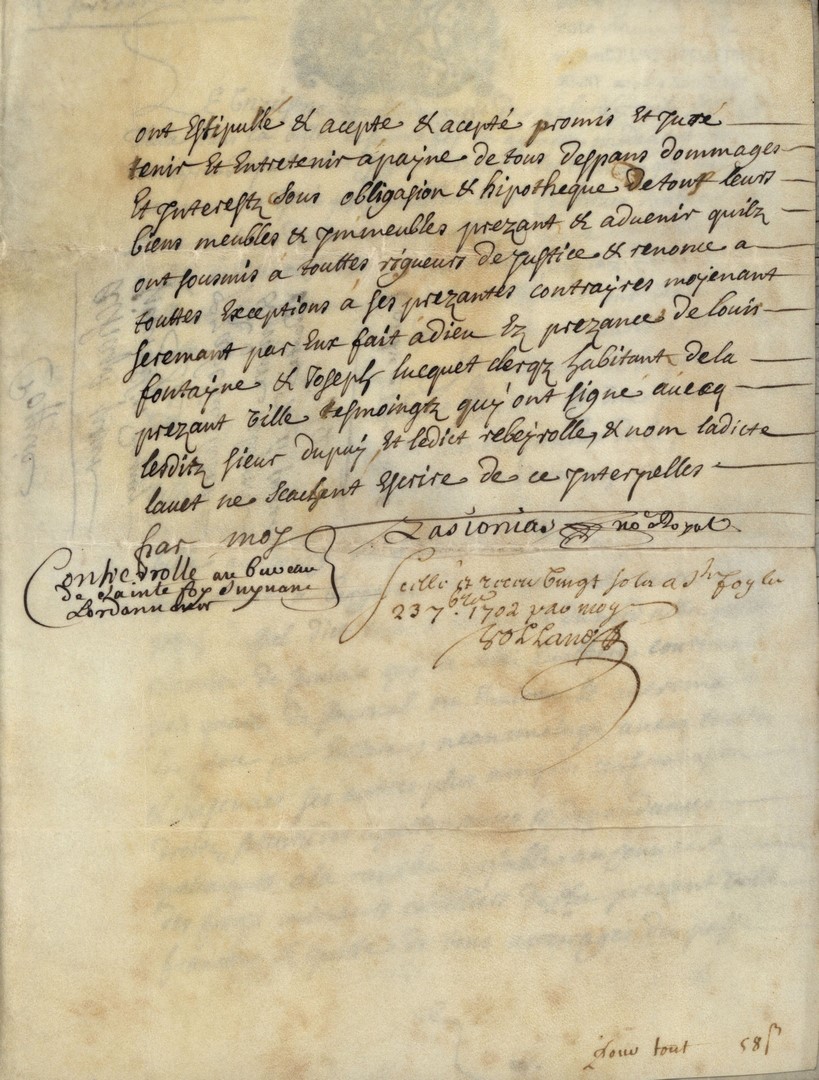 ont Estipullé & acepté & acepté promis Et Juré
tenir Et Entretenir apayne de tous Despans dommages
Et Interestz Sous obligasion & hipotheque De tout leurs
biens meubles & Jmmeubles prezant & aduenir quilz
ont sousmis à touttes rigueurs de Justice & renonce a
touttes Exceptions à ses prezantes contrayres moyenant
seremant par Eux fait a dieu Ez prezance de Louis
fontayne & Joseph lucquet clerqz habitant dela
prezant Ville tesmoingtz quy ont signé auecq
lesditz sieur dupuy Et ledict rebeyrolle, & nom ladicte
lauet ne Scachent Escrire de ce Interpelles
par moy Lasionias no.e Royal
Controrolle au bureau
de Sainte foy
Scellé & receu Vingt solz a Ste foy le
23 7bre 1702 par moy
Pour tout 58 s